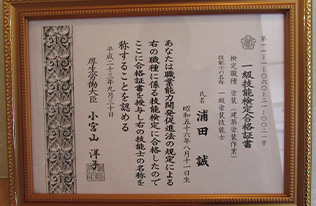 第一一-一-〇六〇-二一-一〇〇二号
一級技能検定合格証書
検定職種 塗装(建築塗装作業)
技能士の名称 一級塗装技能士
氏名 浦田 誠
昭和五十六年八月十一日生
あなたは職業能力開発促進法の規定による
右の職種に係る技能検定に合格したので
ここに合格証書を授与し右の技能士の名称を
称することを認める
平成二十三年九月三十日
厚生労働大臣 小宮山 洋子